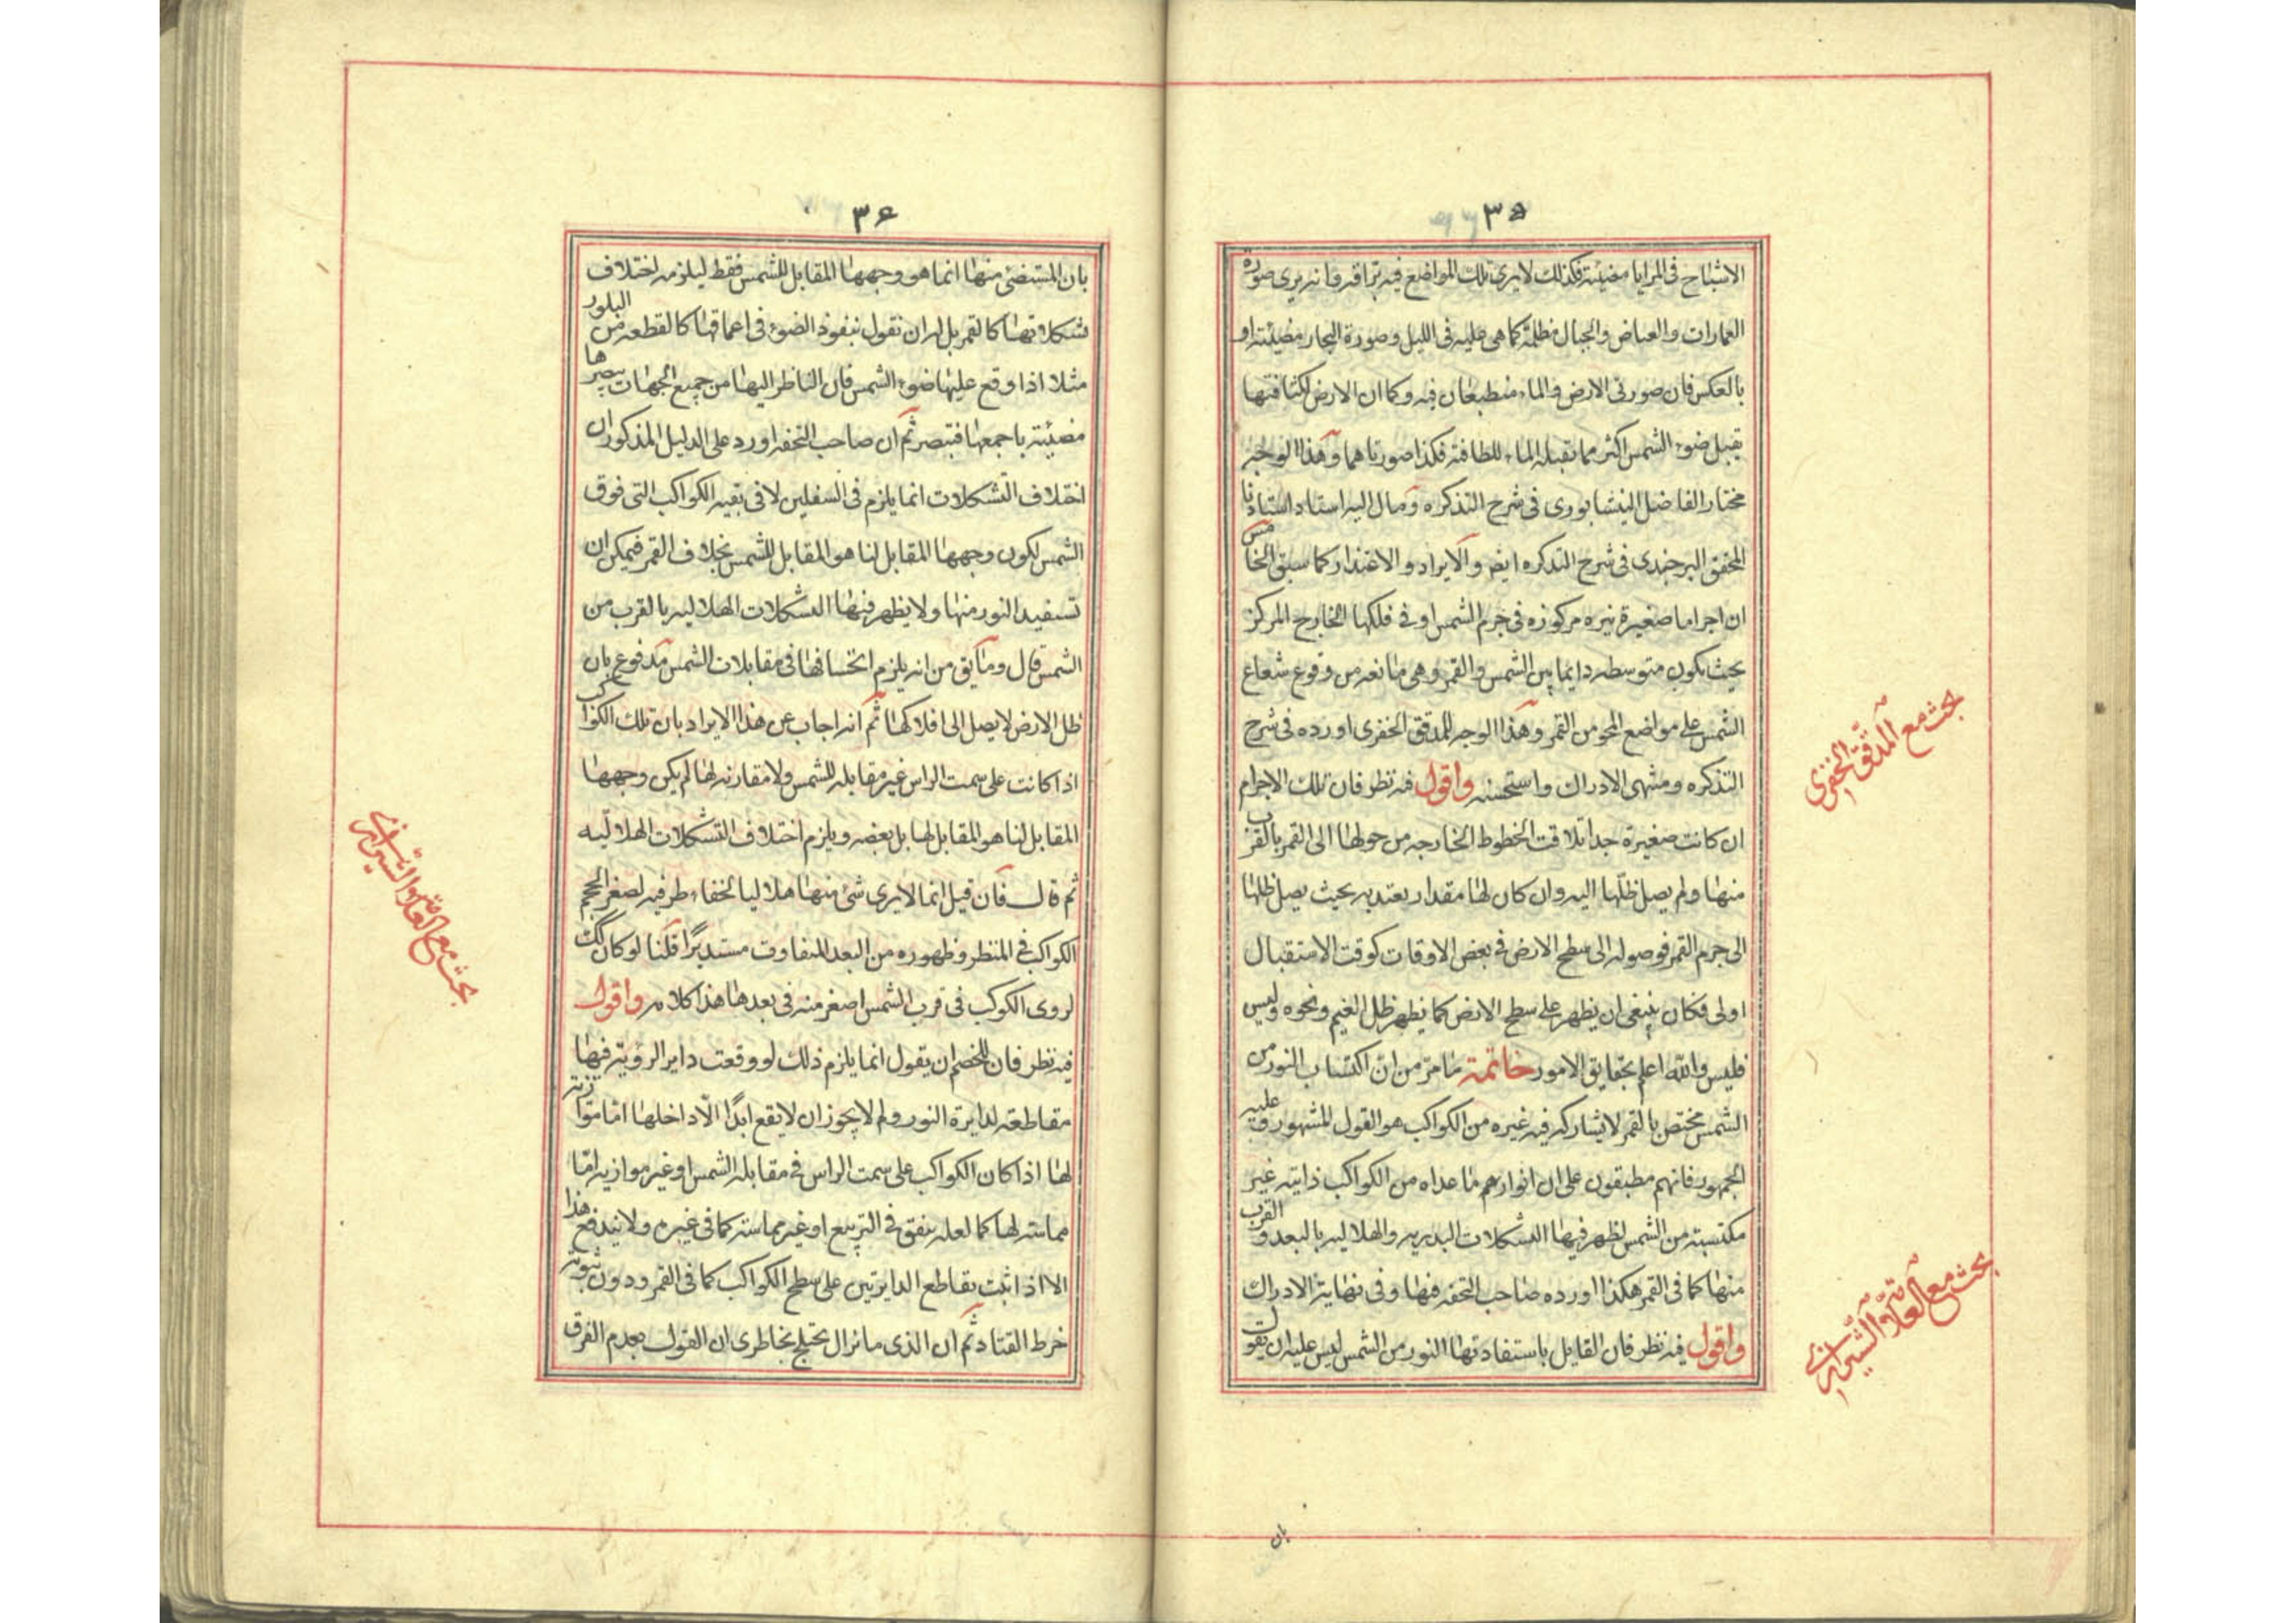 ٣٥
الاشباح فى المرايا مضيئة فكذلك لايرى تلك المواضع فيه براقه فانه يرى صورة
العمارات والغياض والجبال مظلمة كما هى عليه فى الليل وصورة البحار مضيئة او
بالعكس فان صورتى الارض والماء منطبعتان فيه وكما ان الارض لكثافتها
يقبل ضوء الشمس اكثر مما تقبله الماء للطافته فكذا صورتاهما وهذا الوجه
مختار الفاضل النيشابورى فى شرح التذكره ومال اليه استاد استادنا
المحقق البرجندى فى شرح التذكره ايض والايراد والاعتذار كما سبق الخامس
ان اجراما صغيرة نيره مركوزه فى جرم الشمس او فى فلكها الخارج المركز
بحيث يكون متوسطه دايما بين الشمس والقمر وهى مانعه من وقوع شعاع
الشمس على مواضع المحو من القمر وهذا الوجه للمدقق الخفرى اورده فى شرح
التذكره ومنتهى الادراك واستحسنه واقول فيه نظر فان تلك الاجرام
ان كانت صغيرة جدا تلاقت الخطوط الخارجه من حولها الى القمر بالقرب
منها ولم يصل ظلها اليه وان كان لها مقدار يعتد به بحيث يصل ظلها
الى جرم القمر فوصوله الى سطح الارض فى بعض الاوقات كوقت الاستقبال
اولى فكان ينبغى ان يظهر على سطح الارض كما يظهر ظل الغيم ونحوه وليس
فليس والله اعلم بحقايق الامور خاتمة ما مر من ان اكتساب النور من
الشمس مختص بالقمر لا يشاركه فيه غيره من الكواكب هو القول المشهور وعليه
الجمهور فانهم مطبقون على ان انوارهم ما عداه من الكواكب ذاتيه غير
مكتسبته من الشمس لظهر فيها التشكلات البدريه والهلاليه بالبعد والقرب
منها كما فى القمر هكذا اورده صاحب التحفه فيها وفى نهاية الادراك
واقول فيه نظر فان القايل باستفادتها النور من الشمس ليس عليه ان يقول
بان
بحث مع المدقق الخفرى
بحث مع العلامة الشيرازى
٣۶
بان المستضئ منها انما هو وجهها المقابل للشمس فقط ليلزمه اختلاف
تشكلاتها كالقمر بل له ان نقول بنفوذ الضوء فى اعماقها كالقطعه من البلور
مثلا اذا وقع عليها ضوء الشمس فان الناظر اليها من جميع الجهات يبصرها
مضيئة باجمعها فتبصر ثم ان صاحب التحفه اورد على الدليل المذكور ان
اختلاف التشكلات انما يلزم فى السفليين لا فى بقيه الكواكب التى فوق
الشمس لكون وجهها المقابل لنا هو المقابل للشمس بخلاف القمر فيمكن ان
تستفيد النور منها ولا يظهر فيها التشكلات الهلاليه بالقرب من
الشمس قال وما يق من انه يلزم انخسافها فى مقابلات الشمس مدفوع بان
ظل الارض لا يصل الى افلاكها ثم انه اجاب عن هذا الايراد بان تلك الكواكب
اذا كانت على سمت الراس غير مقابله للشمس ولا مقارنه لها لم يكن وجهها
المقابل لنا هو المقابل لها بل بعضه ويلزم اختلاف التشكلات الهلاليه
ثم قال فان قيل انما لا يرى شئ منها هلاليا لخفاء طرفيه لصغر الحجم
الكواكب فى المنظر وظهوره من البعد المتفاوت مستديرا قلنا لو كان كك
لروى الكوكب فى قرب الشمس اصغر منه فى بعدها هذا كلامه واقول
فيه نظر فان للخصم ان يقول انما يلزم ذلك لو وقعت داير الرؤية فيها
مقاطعته لدايرة النور ولم لا يجوز ان لا يقع ابدا الا داخلها اما متوازية
لها اذا كان الكواكب على سمت الراس فى مقابله الشمس او غير موازيه اما
مماسته لها كما لعله يتفق فى التربيع او غير مماسته كما فى غيره ولا يندفع هذا
الا اذا ثبت تقاطع الدايرتين على سطح الكواكب كما فى القمر ودون ثبوته
خرط القتاد ثم ان الذى ما نزال يختلج بخاطرى ان القول بعدم الفرق
بحث مع العلامة الشيرازى